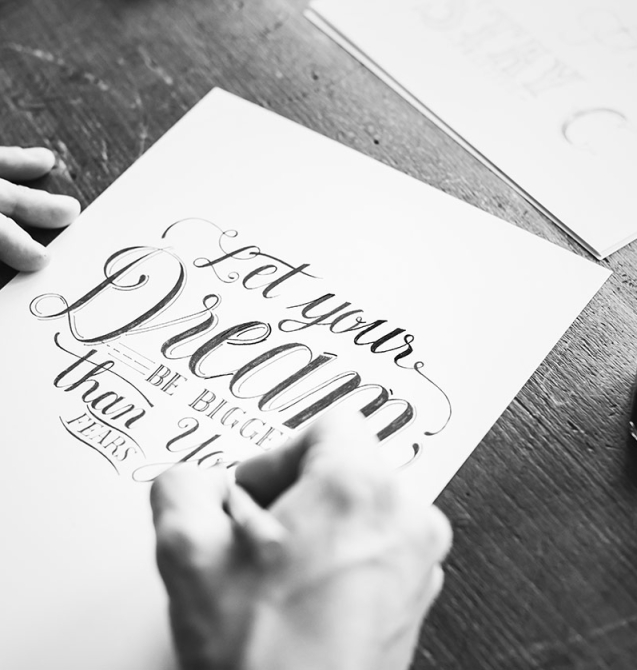 Let your
Dream
BE BIGGE
than You
FEARS
STAY